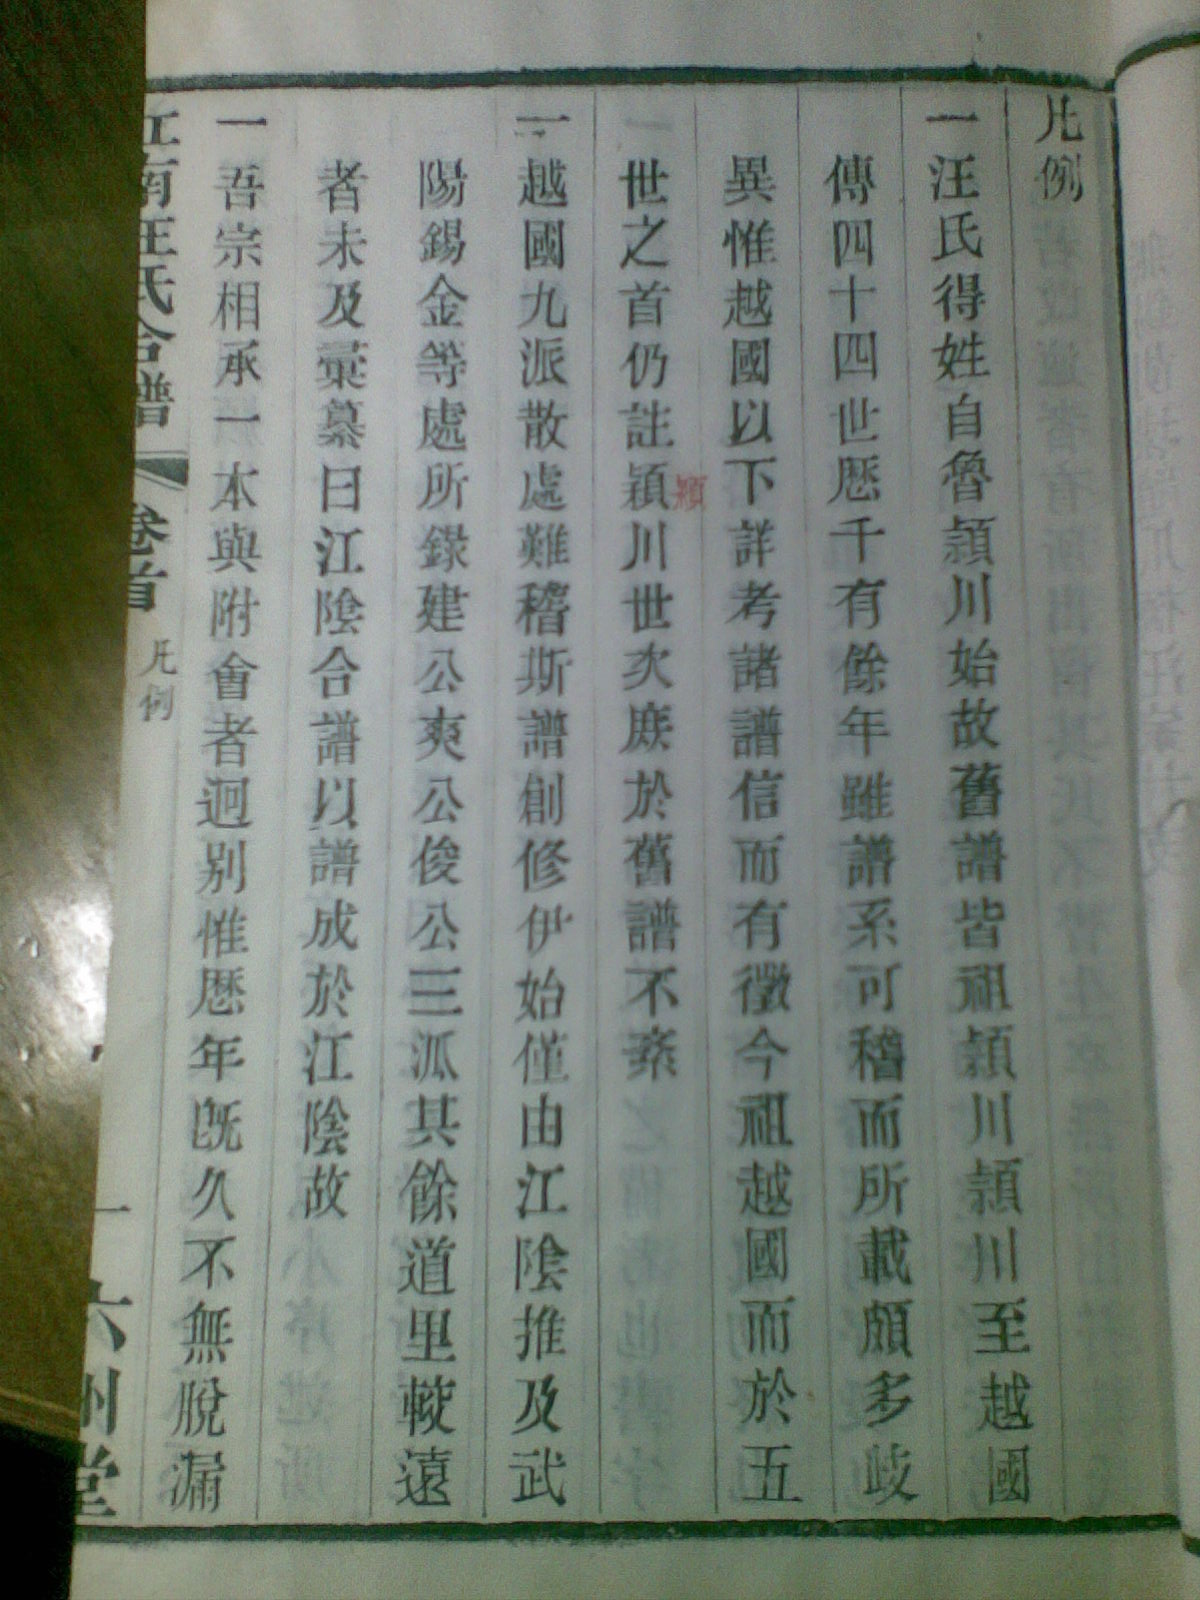 凡例
一汪氏得姓自魯頴川始故舊譜皆祖頴川頴川至越國
傳四十四世歷千有餘年雖譜系可稽而所載頗多歧
異惟越國以下詳考諸譜信而有徵今祖越國而於五
世之首仍註穎川世次庶於舊譜不紊
穎
一越國九派散處難稽斯譜創修伊始僅由江陰推及武
陽錫金等處所錄建公爽公俊公三派其餘道里較遠
者未及彙纂曰江陰合譜以譜成於江陰故
一吾宗相承一本與附會者迥别惟歷年既久不無脫漏
江南汪氏合譜 卷首 凡例 一 六州堂